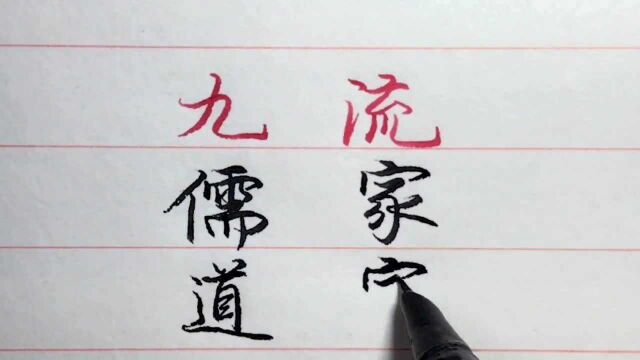 九流
儒家
道